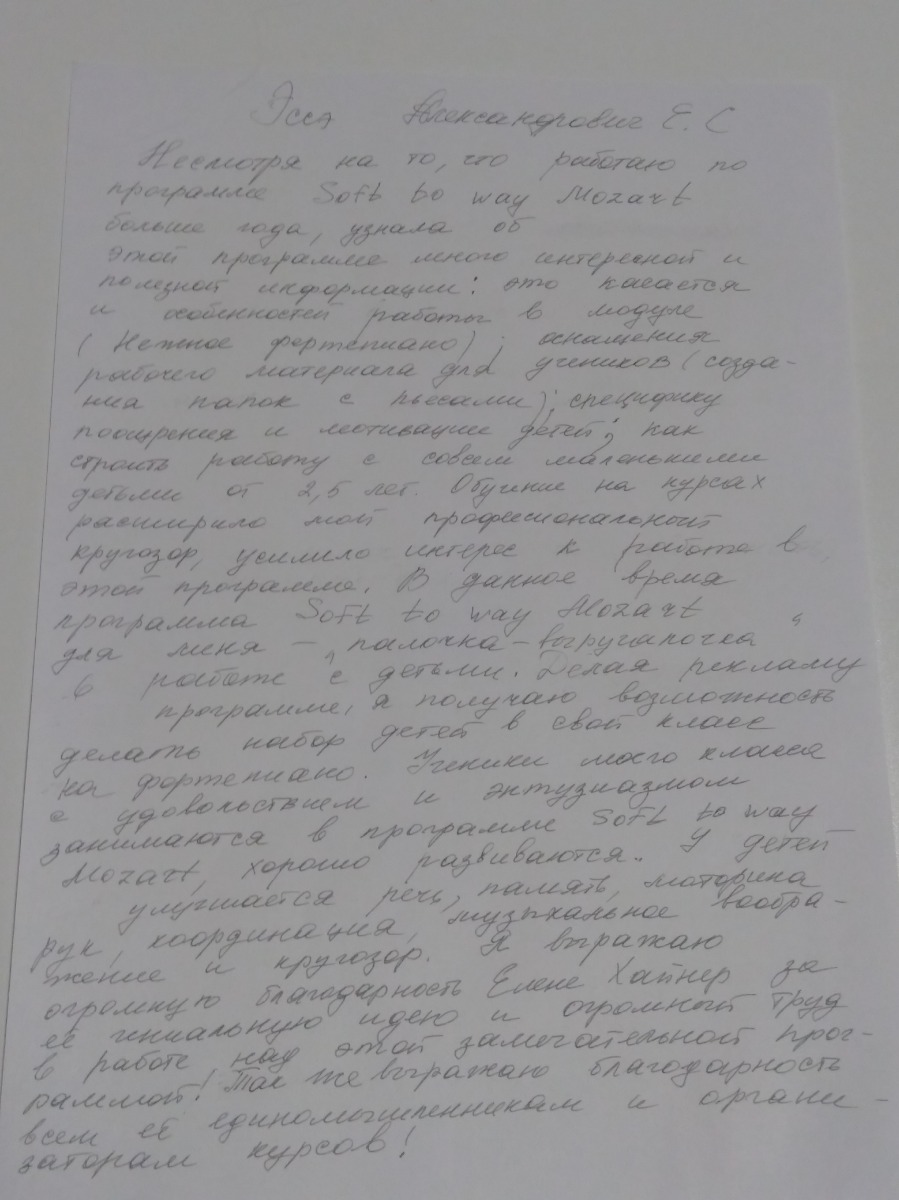 Эссэ Александрович Е. С
Несмотря на то, что работаю по
программе Soft to way Mozart
больше года, узнала об
этой программе много интересной и
полезной информации: это касается
и особенностей работы в модуле
(Нежное фортепиано); оснащения
рабочего материала для учеников (созда-
ния папок с пьесами); специфику
поощрения и мотивации детей; как
строить работу с совсем маленькими
детьми от 2,5 лет. Обучение на курсах
расширило мой професиональный
кругозор, усилило интерес к работе в
этой программе. В данное время
программа Soft to way Mozart
для меня – "палочка-выручалочка"
в работе с детьми. Делая рекламу
программе, я получаю возможность
делать набор детей в свой класс
на фортепиано. Ученики моего класса
с удовольствием и энтузиазмом
занимаются в программе Soft to way
Mozart, хорошо развиваются. У детей
улучшается речь, память, моторика
рук, координация, музыкальное вообра-
жение и кругозор. Я выражаю
огромную благодарность Елене Хайнер за
её гениальную идею и огромный труд
в работе над этой замечательной прог-
раммой! Так же выражаю благодарность
всем её единомышленникам и органи-
заторам курсов!